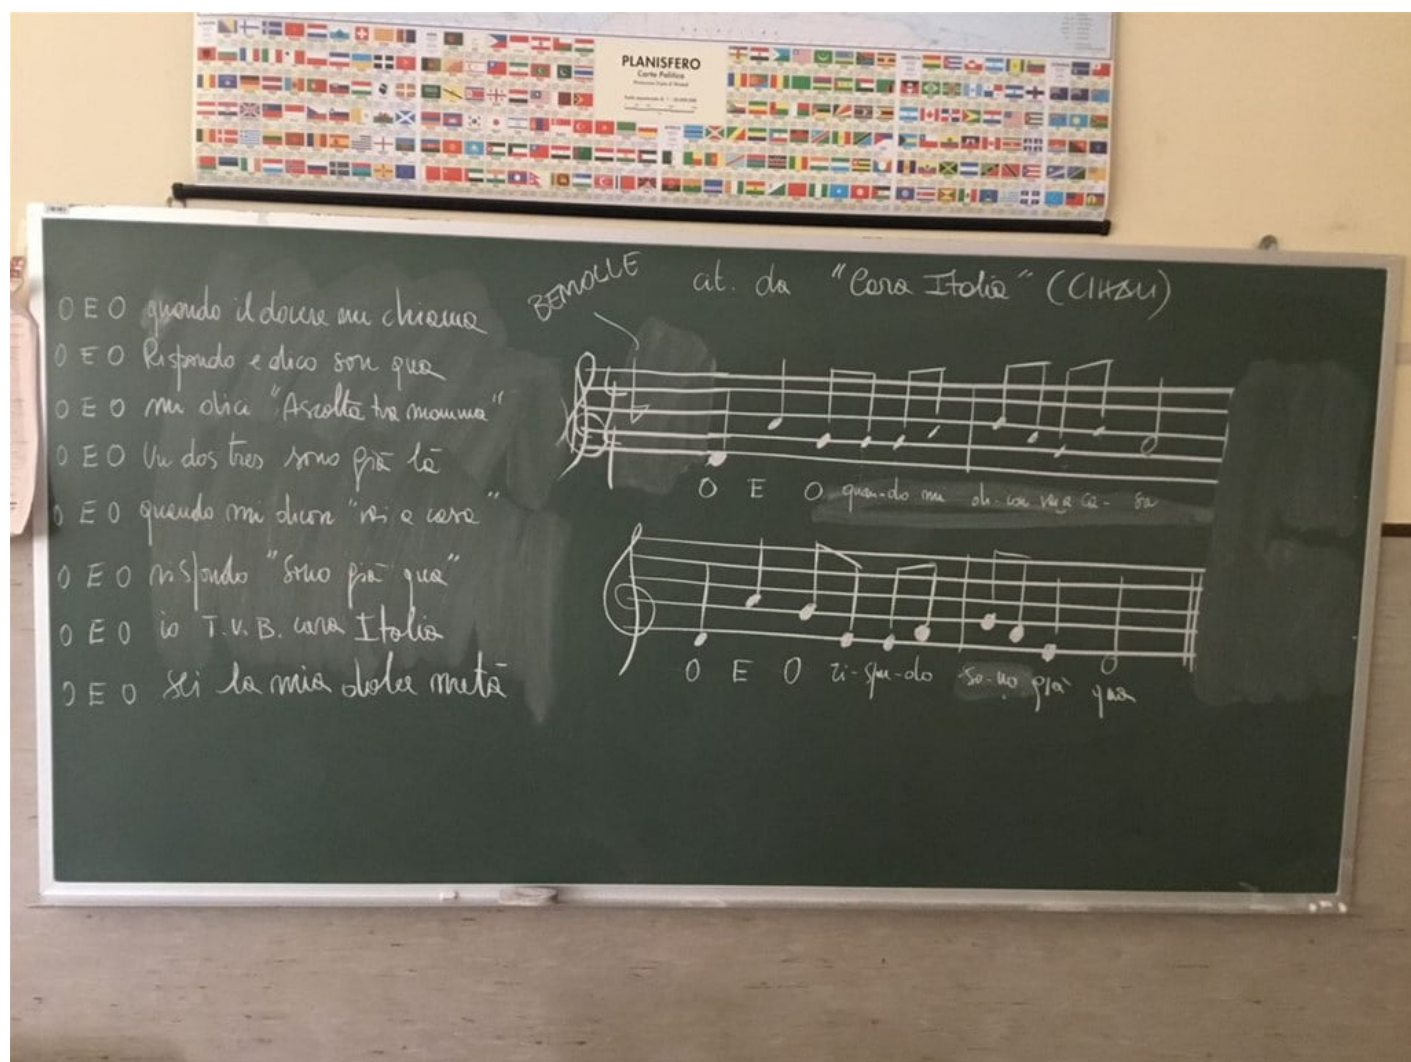 PLANISFERO
Carta Politica
O E O quando il dovere mi chiama
O E O Rispondo e dico son qua
O E O mi dici "Ascolta tua mamma"
O E O Un dos tres sono già là
O E O quando mi dicon "vai a casa"
O E O rispondo "Sono già qua"
O E O io T.V.B. cara Italia
O E O sei la mia dolce metà
BEMOLLE
cit. da "Cara Italia" (GHALI)
O E O quan-do mi di-con vai a ca-sa
O E O ri-spon-do so-no già qua